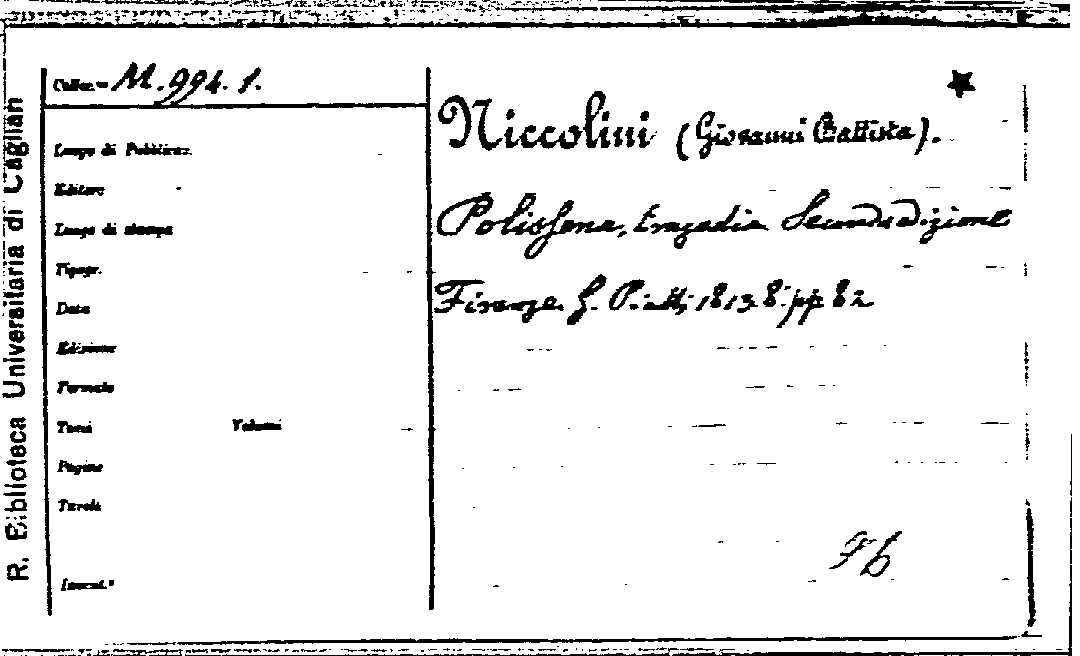 R. Biblioteca Universitaria di Cagliari
Colloc.ne M. 994. 1.
Luogo di Pubblicaz.
Editore
Luogo di stampa
Tipogr.
Data
Edizione
Formato
Tomi Volumi
Pagine
Tavole
Invent.°
Niccolini (Giovanni Battista).
Polissena, tragedia Seconda edizione
Firenze G. Piatti, 1813 8° pp 82